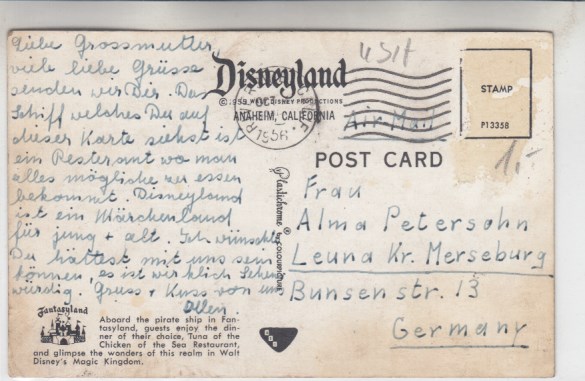 Liebe Grossmutter,
viele liebe Grüsse
senden wir Dir. Das
Schiff welches Du auf
dieser Karte siehst ist
ein Resterant wo man
alles mögliche zu essen
bekommt. Disneyland
ist ein Märchenland
für jung + alt. Ich wünschte
Du hättest mit uns sein
können, es ist wirklich Sehens
würdig. Gruss + Kuss von uns
Allen.
Fantasyland
Aboard the pirate ship in Fan-
tasyland, guests enjoy the din-
ner of their choice, Tuna of the
Chicken of the Sea Restaurant,
and glimpse the wonders of this realm in Walt
Disney's Magic Kingdom.
USA
Disneyland
© 1955 WALT DISNEY PRODUCTIONS
ANAHEIM, CALIFORNIA
1956
Air Mail
STAMP
P13358
1,-
POST CARD
Plastichrome ® by COLOURPICTURE
Frau
Alma Petersohn
Leuna Kr. Merseburg
Bunsenstr. 13
Germany